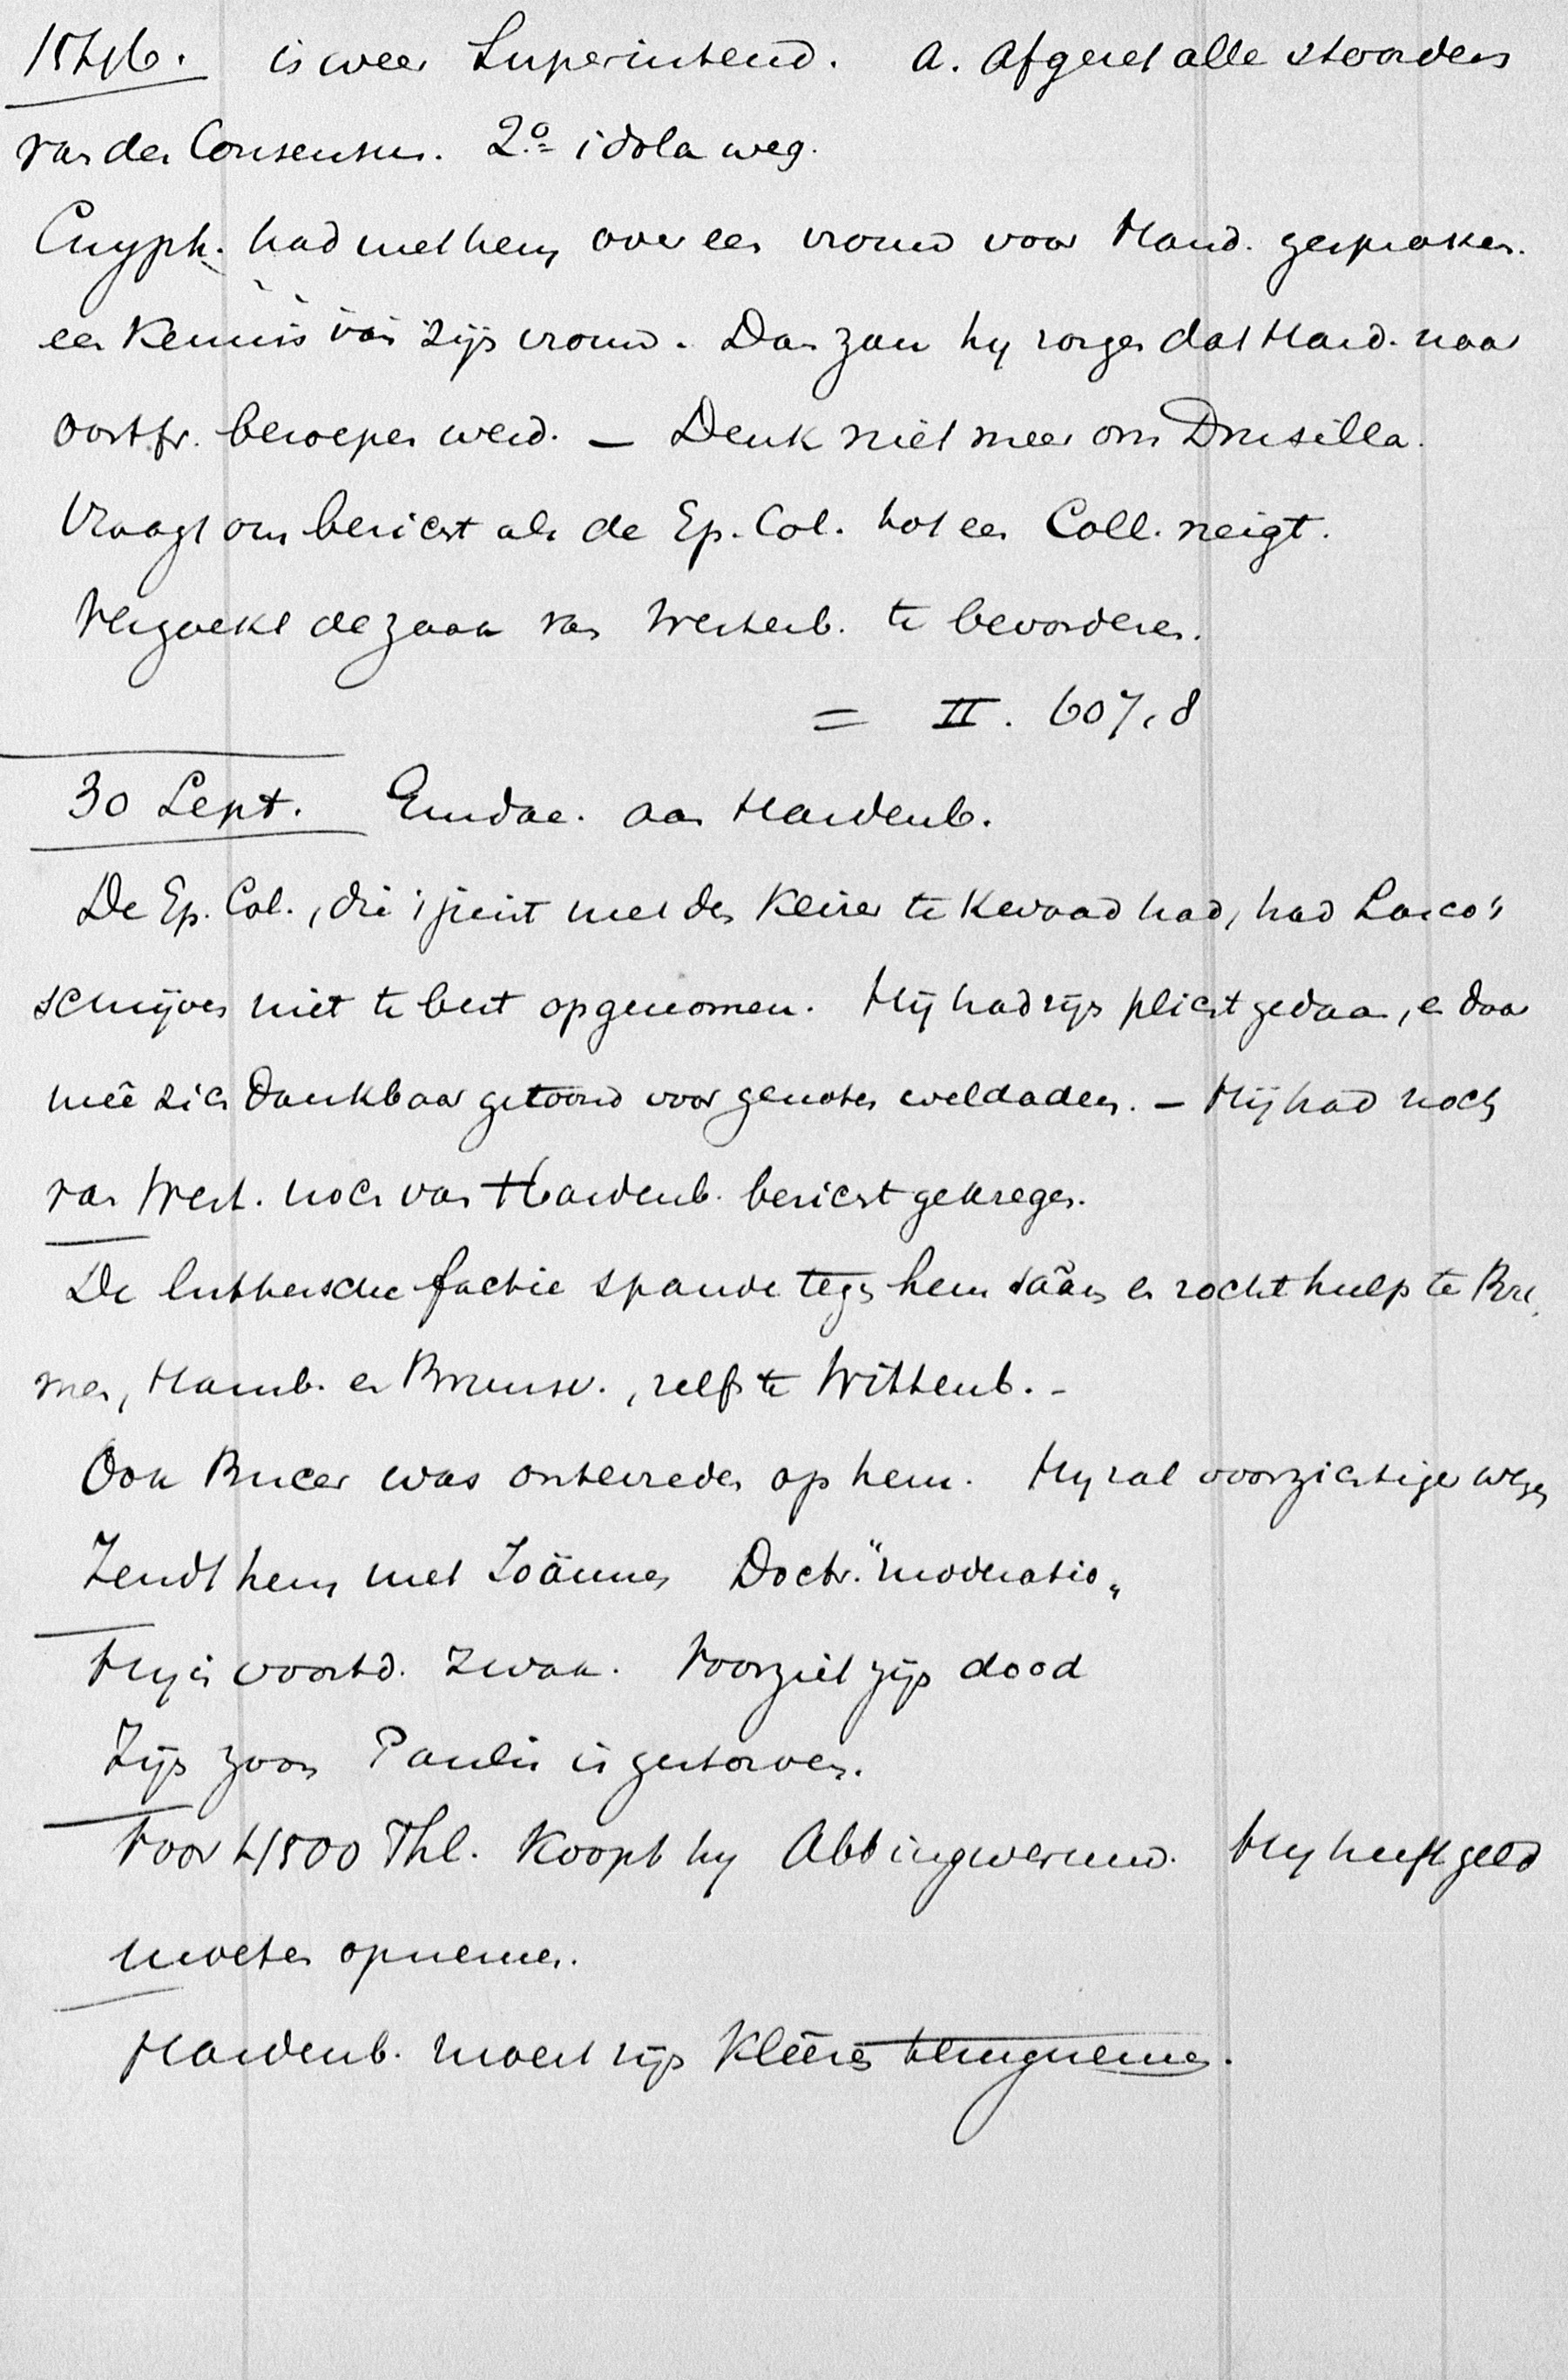 1546. is weer Superintend. a. afgezet alle stoorders
van den Consensus. 2.o idola weg.
Cnyph. had met hem over een vrouw voor Hard. gesproken.
een kennis van zijn vrouw. Dan zou hy zorgen dat Hard. naar
Oostfr. beroepen werd. — Denk niet meer om Drusilla.
Vraagt om bericht als de Ep. Col. tot een Coll. neigt.
Verzoekt de zaak van Westerb. te bevorderen.
= II. 607,8
30 Sept. Emdae. aan Hardenb.
De Ep. Col., die 't juist met den Keizer te kwaad had, had Lasco's
schrijven niet te best opgenomen. Hij had zijn plicht gedaan, en daar
meê zich dankbaar getoond voor genoten weldaden. — Hij had noch
van West. noch van Hardenb. bericht gekregen.
De luthersche factie spande tegen hem sâam en zocht hulp te Bre
men, Hamb. en Brunsw., zelfs te Wittenb. -
Ook Bucer was ontevreden op hem. Hy zal voorzichtiger wezen
Zendt hem met Joännes Doctr. "moderatio„
Hy is voortd. zwak. Voorziet zijn dood
Zijn zoon Paulus is gestorven.
Voor 4500 Thl. koopt hy Abbingwerum. Hy heeft geld
moeten opnemen.
Hardenb. moest zijn kleêren terugnemen.